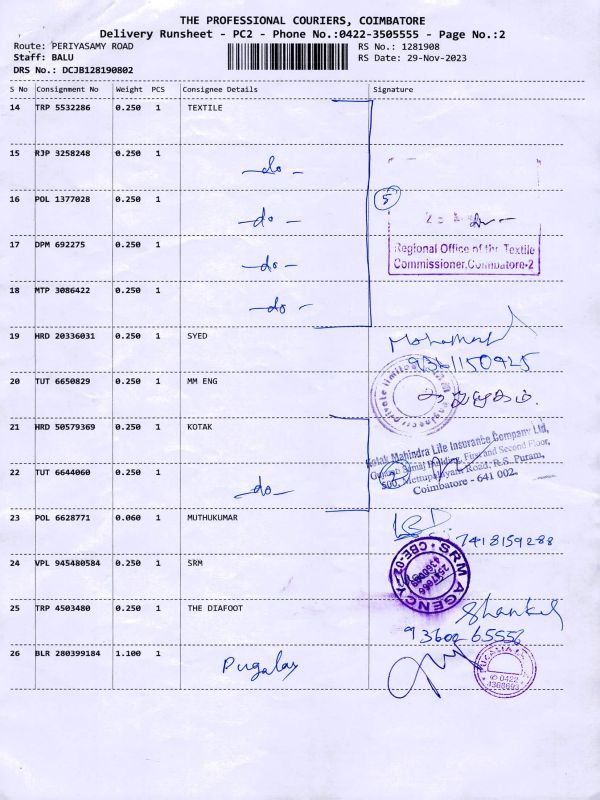 THE PROFESSIONAL COURIERS, COIMBATORE
Delivery Runsheet - PC2 - Phone No.:0422-3505555 - Page No.:2
Route: PERIYASAMY ROAD RS No.: 1281908
Staff: BALU RS Date: 29-Nov-2023
DRS No.: DCJB128190802
S No Consignment No Weight PCS Consignee Details Signature
14 TRP 5532286 0.250 1 TEXTILE
15 RJP 3258248 0.250 1 -do-
16 POL 1377028 0.250 1 -do- 5
17 DPM 692275 0.250 1 -do-
Regional Office of the Textile
Commissioner, Coimbatore-2
18 MTP 3086422 0.250 1 -do-
19 HRD 20336031 0.250 1 SYED
20 TUT 6650829 0.250 1 MM ENG
21 HRD 50579369 0.250 1 KOTAK
Kotak Mahindra Life Insurance Company Ltd,
Gujarati Samaj Building, First and Second Floor,
500, Mettupalayam Road, R.S. Puram,
Coimbatore - 641 002.
22 TUT 6644060 0.250 1 -do-
23 POL 6628771 0.060 1 MUTHUKUMAR
7418159288
24 VPL 945480584 0.250 1 SRM
SRM AGENCY CBE-02
25 TRP 4503480 0.250 1 THE DIAFOOT
Shankel
93602 65556
26 BLR 280399184 1.100 1 Pugalas